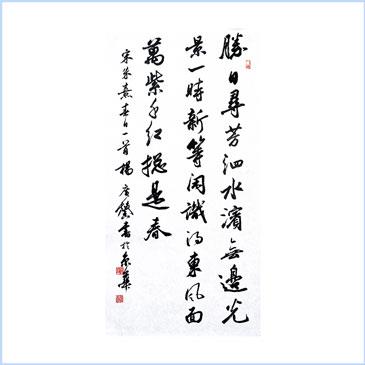 勝日尋芳泗水濱無邊光
景一時新等閑識得東風面
萬紫千紅總是春
宋朱熹春日一首楊書於京華